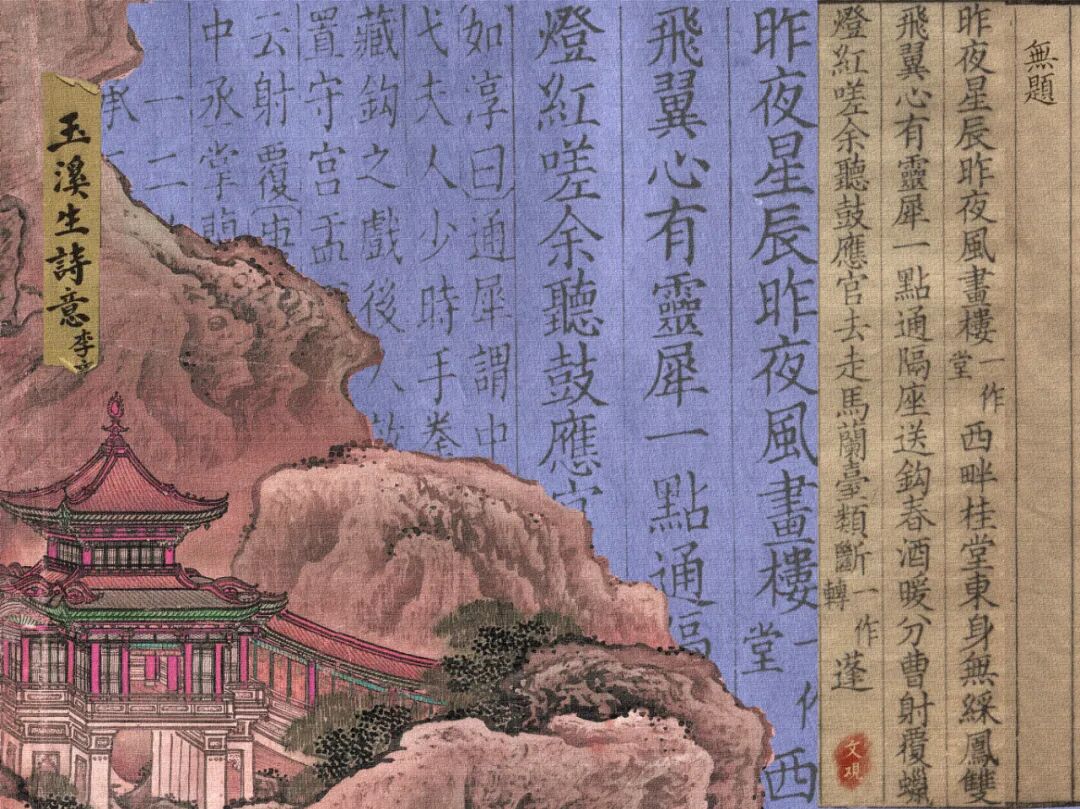 無題
昨夜星辰昨夜風畫樓一作堂西畔桂堂東身無綵鳳雙
飛翼心有靈犀一點通隔座送鈎春酒暖分曹射覆蠟
燈紅嗟余聽鼓應官去走馬蘭臺類斷一作轉蓬
文观
昨夜星辰昨夜風畫樓一作堂西
飛翼心有靈犀一點通
燈紅嗟余聽鼓應
如淳曰通犀謂中
弋夫人少時手拳
藏鈎之戲後人
置守宮盂
云射覆
中丞掌蘭
一二
承
玉溪生詩意 李